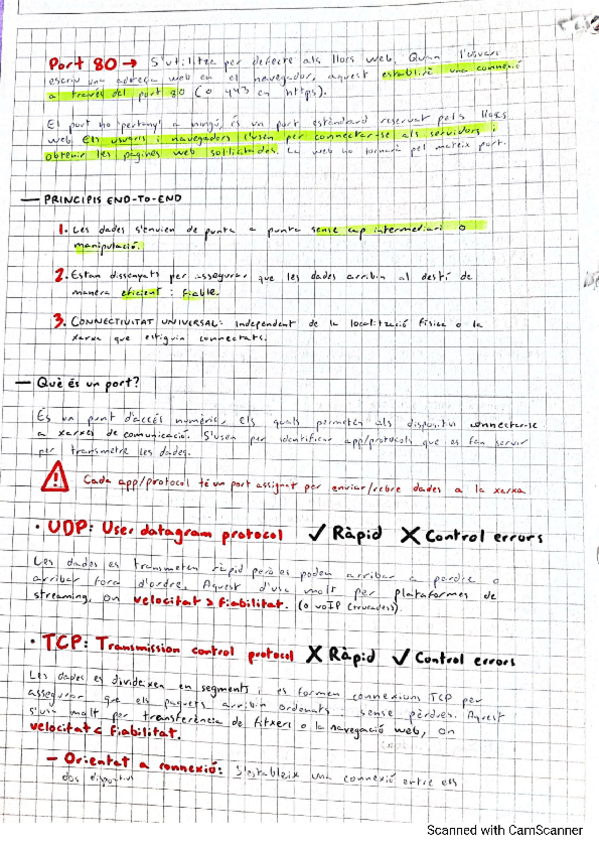 Port 80 → S'utilitza per defecte als llocs web. Quan l'usuari
escriu una adreça web en el navegador, aquest establirà una connexió
a través del port 80 (o 443 en https).
El port no pertany a ningú, és un port estàndard reservat pels llocs
web. Els usuaris i navegadors l'usen per connectar-se als servidors i
obtenir les pàgines web sol·licitades. La web ho tornarà pel mateix port.
— PRINCIPIS END-TO-END
1. Les dades s'envien de punta a punta sense cap intermediari o
manipulació.
2. Estan dissenyats per assegurar que les dades arribin al destí de
manera eficient i fiable.
3. CONNECTIVITAT UNIVERSAL: independent de la localització física o la
xarxa que estiguin connectats.
— Què és un port?
És un punt d'accés numèric, els quals permeten als dispositius connectar-se
a xarxes de comunicació. S'usen per identificar app/protocols que es fan servir
per transmetre les dades.
Cada app/protocol té un port assignat per enviar/rebre dades a la xarxa
• UDP: User datagram protocol ✓ Ràpid X Control errors
Les dades es transmeten ràpid però es poden arribar a perdre o
arribar fora d'ordre. Aquest s'usa molt per plataformes de
streaming, on velocitat > fiabilitat. (o VoIP (trucades)).
• TCP: Transmission control protocol X Ràpid ✓ Control errors
Les dades es divideixen en segments i es formen connexions TCP per
assegurar que els paquets arribin ordenats i sense pèrdues. Aquest
s'usa molt per transferència de fitxers o la navegació web, on
velocitat < fiabilitat.
— Orientat a connexió: S'estableix una connexió entre els
dos dispositius
Scanned with CamScanner